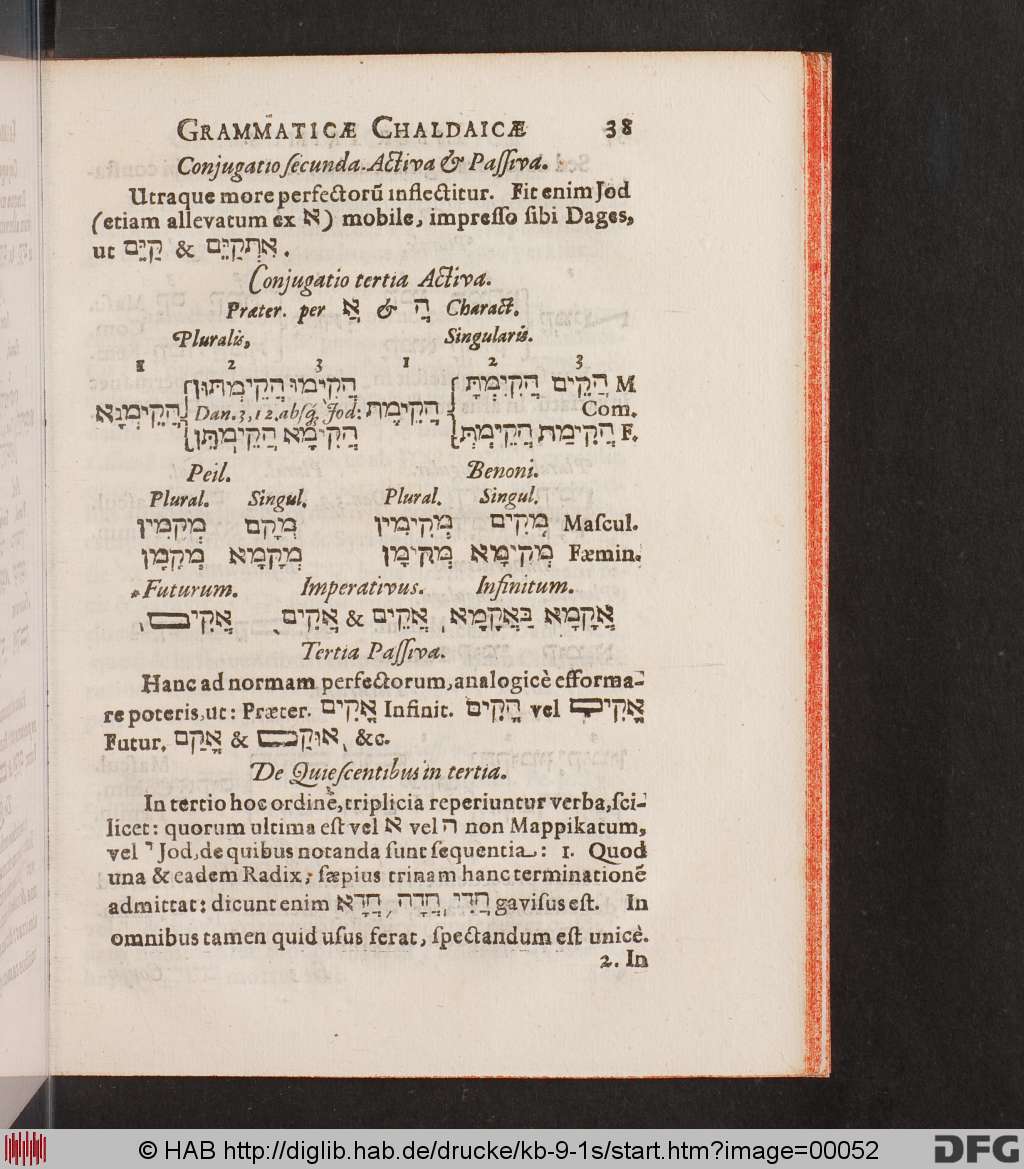 GRAMMATICÆ CHALDAICÆ 38
Conjugatio ſecunda. Activa & Paſſiva.
Utraque more perfectorū inflectitur. Fit enim Jod
(etiam allevatum ex א) mobile, impreſſo ſibi Dages,
ut קַיֵּם & אִתְקַיֵּם.
Conjugatio tertia Activa.
Præter. per אֲ & הֲ Charact.
Pluralis, Singularis.
1 2 3 1 2 3
הֲקִימוּ הֲקֵימְתּוּן הֲקֵים הֲקִימְתָּ M
הֲקֵימְנָא Dan. 3, 12. abſq; Jod: הֲקֵימֶת Com.
הֲקִימָא הֲקֵימְתֵּן הֲקִימַת הֲקֵימְתְּ F.
Peil. Benoni.
Plural. Singul. Plural. Singul.
מְקִמִין מְקָם מְקִימִין מְקִים Maſcul.
מְקִמָן מְקָמָא מְקִימָן מְקִימָא Fæmin.
Futurum. Imperativus. Infinitum.
אֲקָמָא בַּאֲקָמָא, אֲקֵים & אֲקִים, אֲקִים,
Tertia Paſſiva.
Hanc ad normam perfectorum, analogicè efforma-
re poteris, ut: Præter. אֳקִים Infinit. הֳקִים vel אֳקִים
Futur. אֳקַם & אוּקַם, &c.
De Quieſcentibus in tertia.
In tertio hoc ordine, triplicia reperiuntur verba, ſci-
licet: quorum ultima eſt vel א vel ה non Mappikatum,
vel י Jod, de quibus notanda ſunt ſequentia: 1. Quod
una & eadem Radix, ſæpius trinam hanc terminationē
admittat: dicunt enim חֲדִי, חֲדָה, חֲדָא gaviſus eſt. In
omnibus tamen quid uſus ferat, ſpectandum eſt unicè.
2. In
© HAB http://diglib.hab.de/drucke/kb-9-1s/start.htm?image=00052
DFG